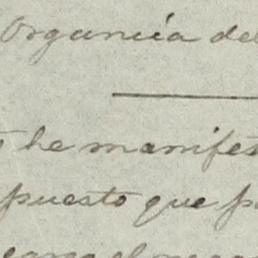 Organcia del
he manifes
puesto que p